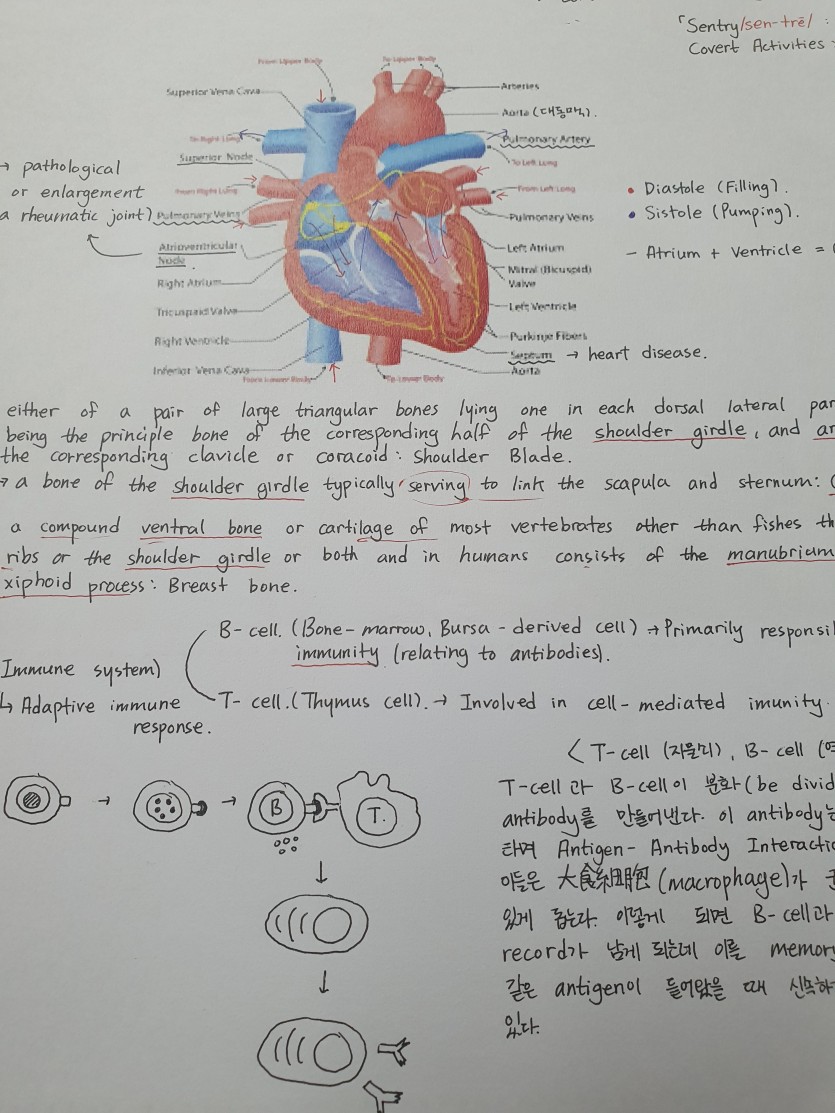 「Sentry/sen-trē/ :
Covert Activities
From Upper Body
To Upper Body
Superior Vena Cava
Arteries
Aorta (대동맥).
To Right Lung
Pulmonary Artery
Superior Node
To Left Lung
→ pathological
or enlargement
a rheumatic joint)
From Right Lung
From Left Lung
• Diastole (Filling).
Pulmonary Veins
Pulmonary Veins
• Sistole (Pumping).
Atrioventricular
Node
Left Atrium
- Atrium + Ventricle =
Right Atrium
Mitral (Bicuspid)
Valve
Tricuspaid Valve
Left Ventricle
Right Ventricle
Purkinje Fibers
Septum → heart disease.
Inferior Vena Cava
Aorta
From Lower Body
To Lower Body
either of a pair of large triangular bones lying one in each dorsal lateral par
being the principle bone of the corresponding half of the shoulder girdle, and ar
the corresponding clavicle or coracoid : Shoulder Blade.
→ a bone of the shoulder girdle typically serving to link the scapula and sternum: (
a compound ventral bone or cartilage of most vertebrates other than fishes th
ribs or the shoulder girdle or both and in humans consists of the manubrium
xiphoid process : Breast bone.
B- cell. (Bone-marrow, Bursa-derived cell) → Primarily responsi
immunity (relating to antibodies).
Immune system)
↳ Adaptive immune
response.
T- cell. (Thymus cell). → Involved in cell-mediated imunity.
< T-cell (자물쇠), B-cell (
T-cell 과 B-cell이 분화 (be divid
antibody를 만들어낸다. 이 antibody는
하며 Antigen-Antibody Interactio
이들은 大食細胞 (macrophage)가
있게 돕는다. 이렇게 되면 B-cell과
record가 남게 되는데 이를 memory
같은 antigen이 들어왔을 때 신속하
있다.
B
T.